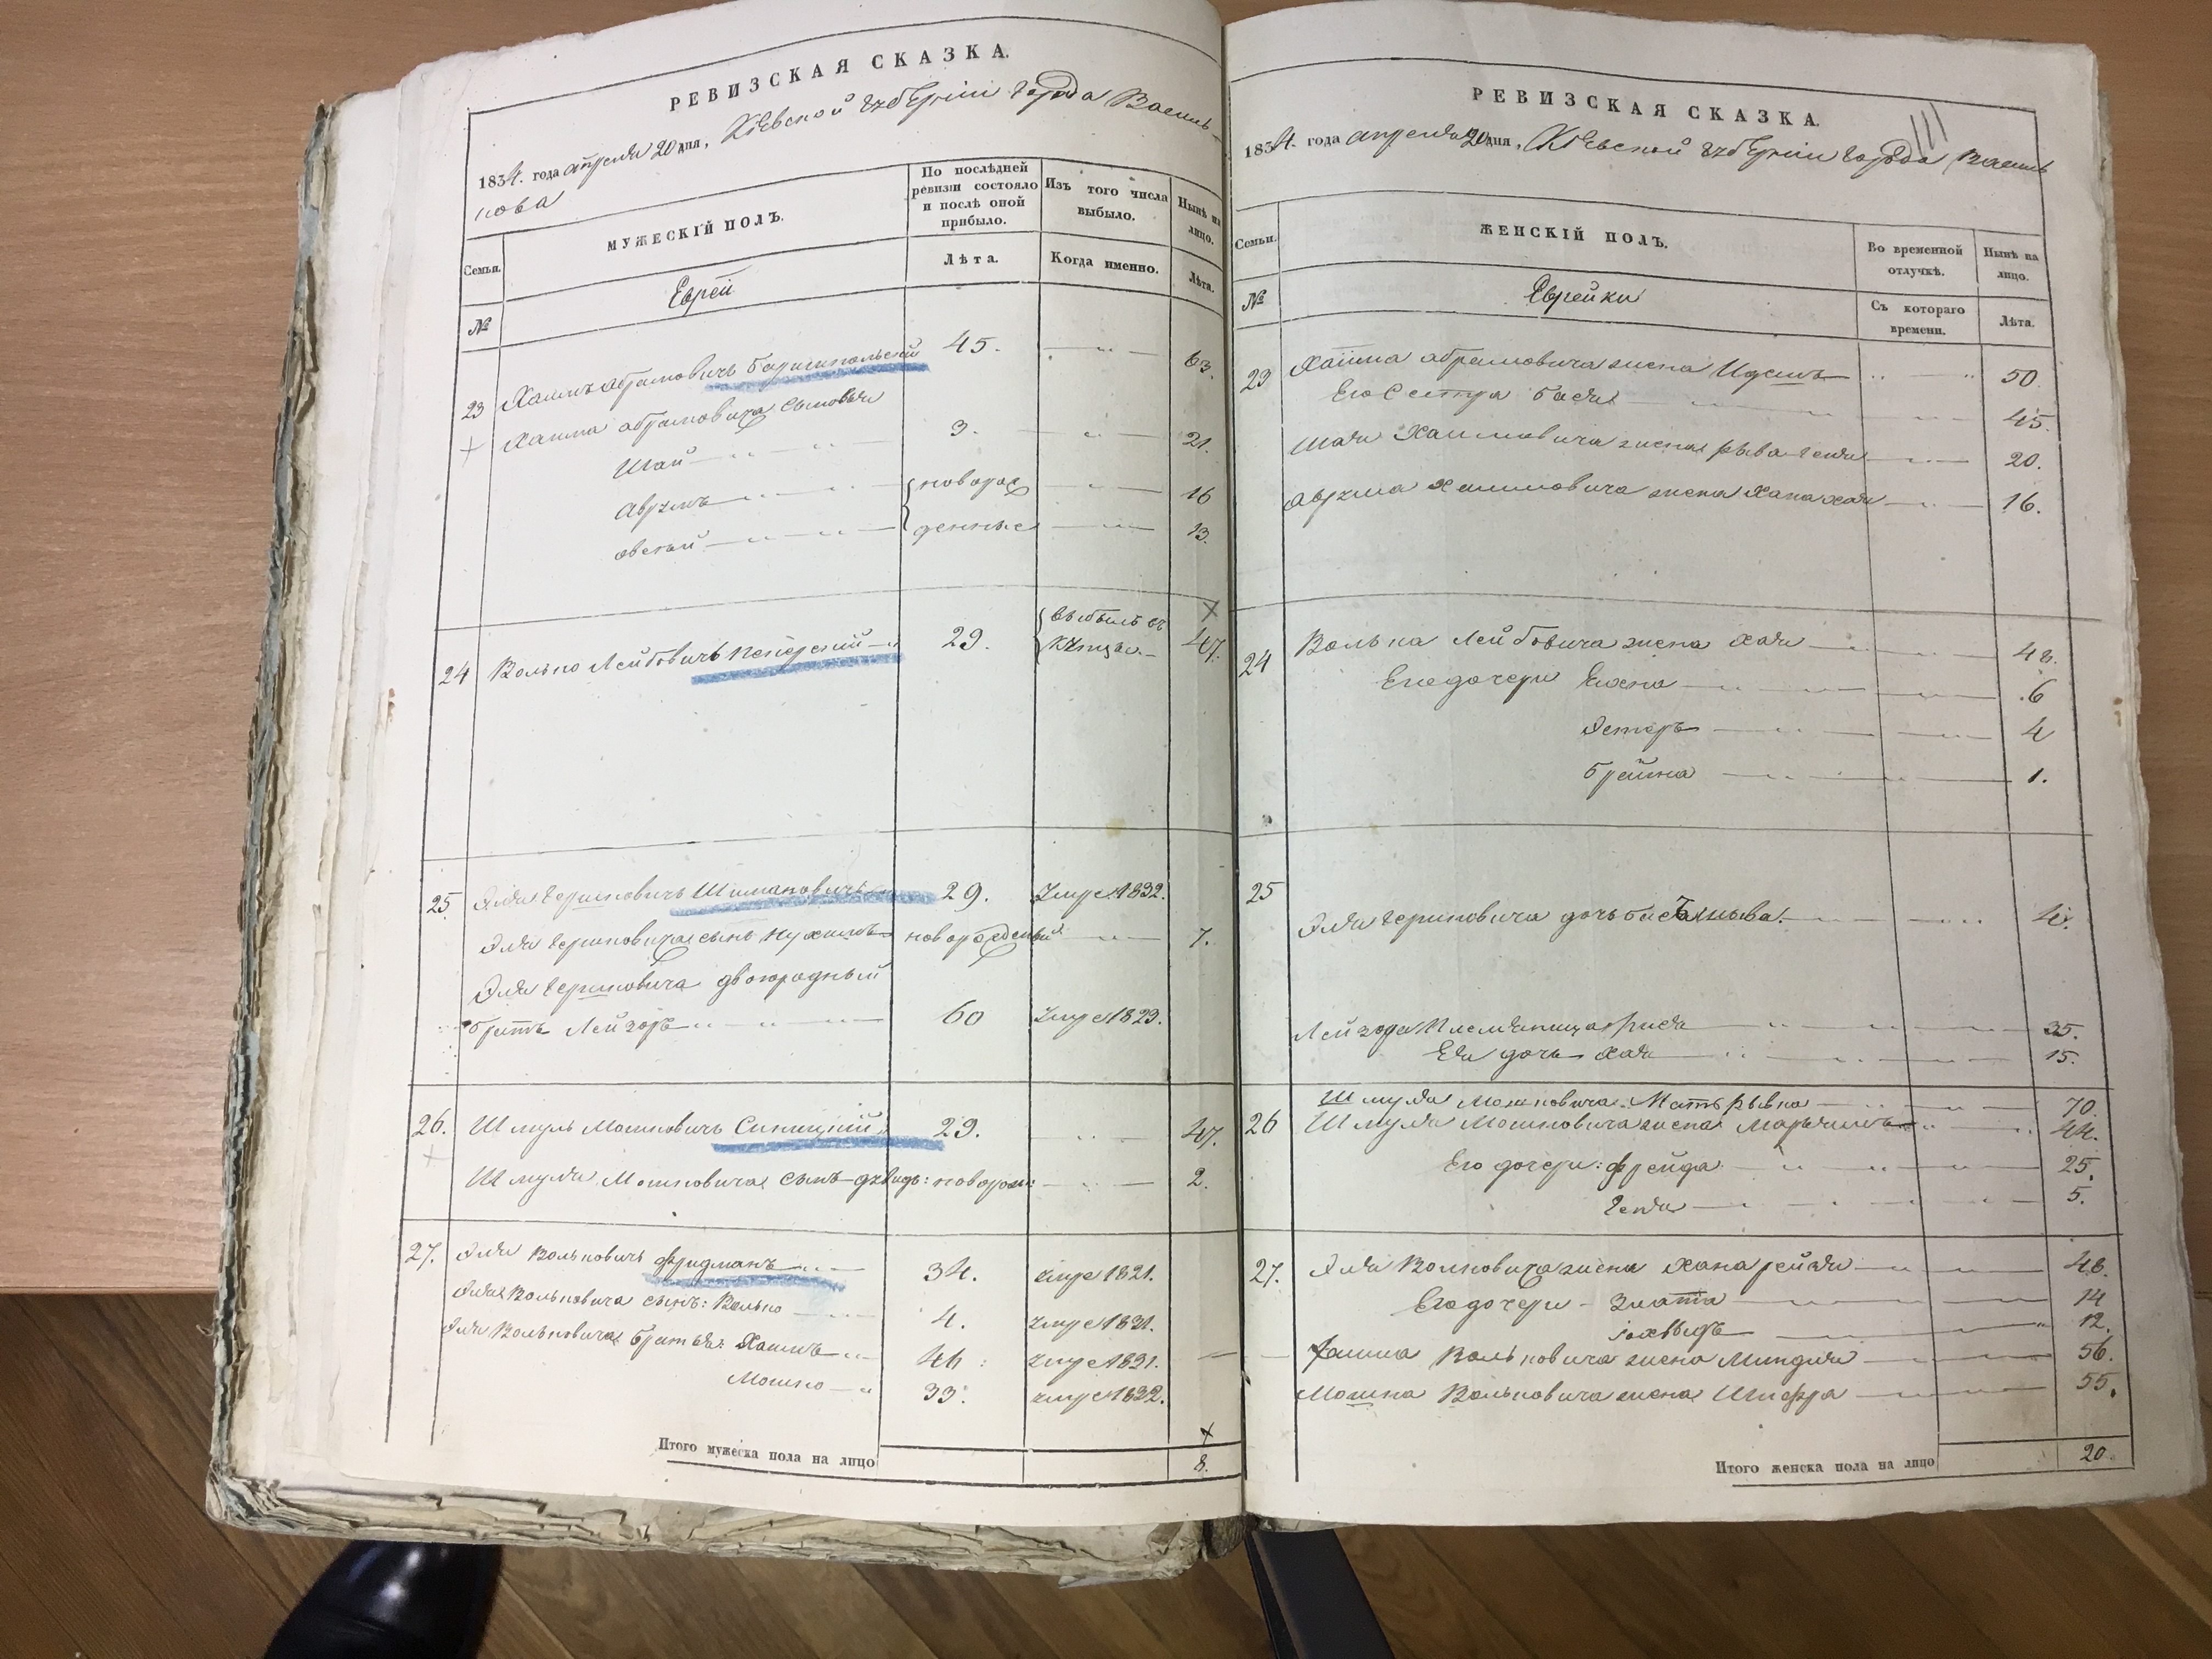 РЕВИЗСКАЯ СКАЗКА.
1834. года апреля 20 дня, Кіевской губерніи города Василь-
кова
Семьи.
МУЖЕСКІЙ ПОЛЪ.
По послѣдней ревизіи состояло и послѣ оной прибыло.
Изъ того числа выбыло.
Нынѣ на лицо.
№
Еврей
Лѣта.
Когда именно.
Лѣта.
23 Хаимъ Абрамовичъ Бариспольский 45. 63.
Хаима Абрамовича сыновья
Шай 3. 21.
Аврумъ новорож 16
Овсѣй денные 13.
24 Волько Лейбовичъ 29. выбылъ въ 47.
25. Эля Гершковичъ Шимановичъ 29. умре 1832.
Эля Гершковича сынъ Нухимъ новорожденный 7.
Эля Гершковича двоюродный
братъ Лейзоръ 60 умре 1823.
26. Шмуль Мошковичъ Синицкий 29. 47.
Шмуля Мошковича сынъ Дувидъ: новорож: 2.
27. Эля Вольковичъ Фридманъ 34. умре 1821.
Эля Вольковича сынъ: Волько 4. умре 1821.
Эля Вольковича братья: Хаимъ 44: умре 1831.
Мошко 33. умре 1832.
Итого мужеска пола на лицо 8.
РЕВИЗСКАЯ СКАЗКА.
1834. года апреля 20 дня, Кіевской губерніи города Василь
Семьи.
ЖЕНСКІЙ ПОЛЪ.
Во временной отлучкѣ.
Нынѣ на лицо.
№
Еврейки
Съ котораго времени.
Лѣта.
23 Хаима Абрамовича жена Идесъ 50
Его сестра Бася 45.
Шая Хаимовича жена Рыва Геня 20.
Аврума Хаимовича жена Хана Хая 16.
24 Волька Лейбовича жена Хая
Его дочери 6
Эстеръ 4
Брайна 1.
25
Эля Гершковича дочь
Лейзора племяница Фрида 35.
Ея дочь Хая 15.
Шмуля Мошковича: Мать Рывка 70.
26 Шмуля Мошковича жена Марьямъ 44.
Его дочери: Фрейда 25.
Геня 5.
27. Эля Волковича жена Хана Рейзя 48.
Его дочери - Злата 14
12.
Хаима Вольковича жена Миндля 56.
Мошка Вольковича жена Шифра 55.
Итого женска пола на лицо 20